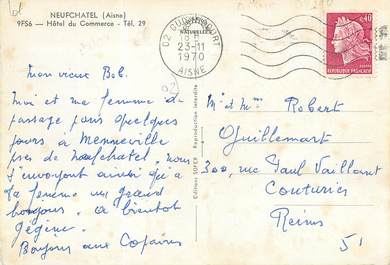 NEUFCHATEL (Aisne)
9F56 — Hôtel du Commerce - Tél, 29
02 GUIGNICOURT
18 H
23-11
1970
AISNE
0,40
REPUBLIQUE FRANÇAISE
Editions SOFER - Reproduction interdite
Mon vieux Bob.
Moi et ma femme de
passage pour quelques
jours à Menneville
près de neufchatel, nous
t'envoyons ainsi qu'à
ta femme un grand
bonjour. a bientot
gégène.
Bonjour aux Copains
02
Mr et Mme Robert
Guillemart
300, rue Paul Vaillant
Couturier
Reims
51